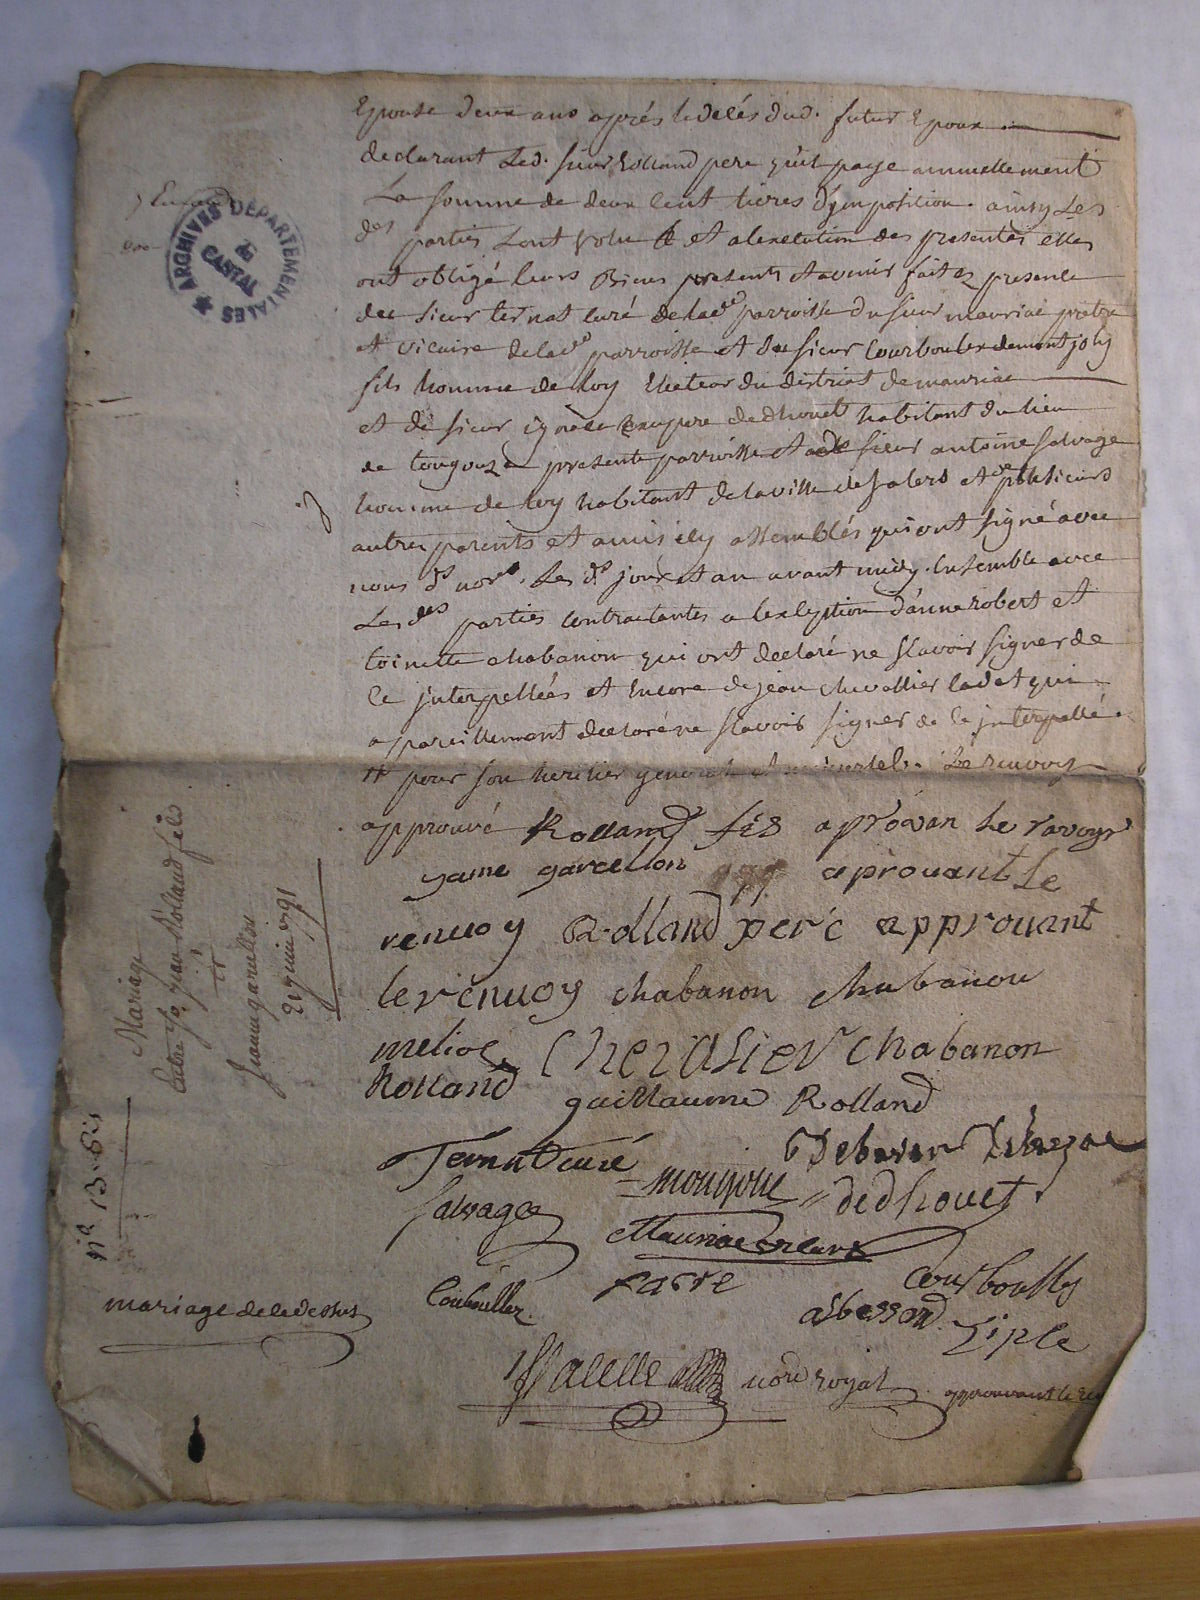 Epouse deux ans après le decés dud. futur Epoux
declarant Led. sieur Rolland pere qu'il paye annuellement
La somme de deux Cent livres d'ymposition. ainsy Les
des parties L'ont volu et a lexecution des presentes elles
ont obligé leurs Biens presents et avenir fait es presence
des sieur ternat curé de lad.e parroisse du sieur mauriac pretre
et vicaire de lad.e parroisse et du sieur Courboules de montjoly
fils homme de loy Electeur du district de mauriac
et de sieur ignace exupere de dhouet habitant du lieu
de tougouze presente parroisse et de sieur antoine salvage
homme de loy habitant de la ville de salers et de plusieurs
autres parents et amis icy assemblés qui ont signé avec
nous d.s nor.s Les d.s jour et an avant midy. Ensemble avec
Les d.es parties Contractantes a lexception d'anne robert et
toinette chabanon qui ont declaré ne scavoir signer de
Ce jnterpellées et Encore de jean chevallier Cadet qui
a pareillement declaré ne scavoir signer de Ce jnterpellé.
pour son heritier general et universel. Le renvoy
approuvé Rolland fis aprovan le ravoyr
garcellon aprouant Le
renvoy Rolland peré approuvant
le renvoy chabanon chabanon
Chevalier Chabanon
Rolland guillaume Rolland
Ternat curé
montjolie dedhouet
Salvage
Mauriac vicaire
Courboulles
Fabre
Courboulles
albessard Tiple
nore royal approuvant le
Mariage
Entre Sr. jean Rolland fils
et
Jeanne garcellon
21 juin 1791
n° 13. Bis
mariage de ledessus
ARCHIVES DÉPARTEMENTALES
du
CANTAL